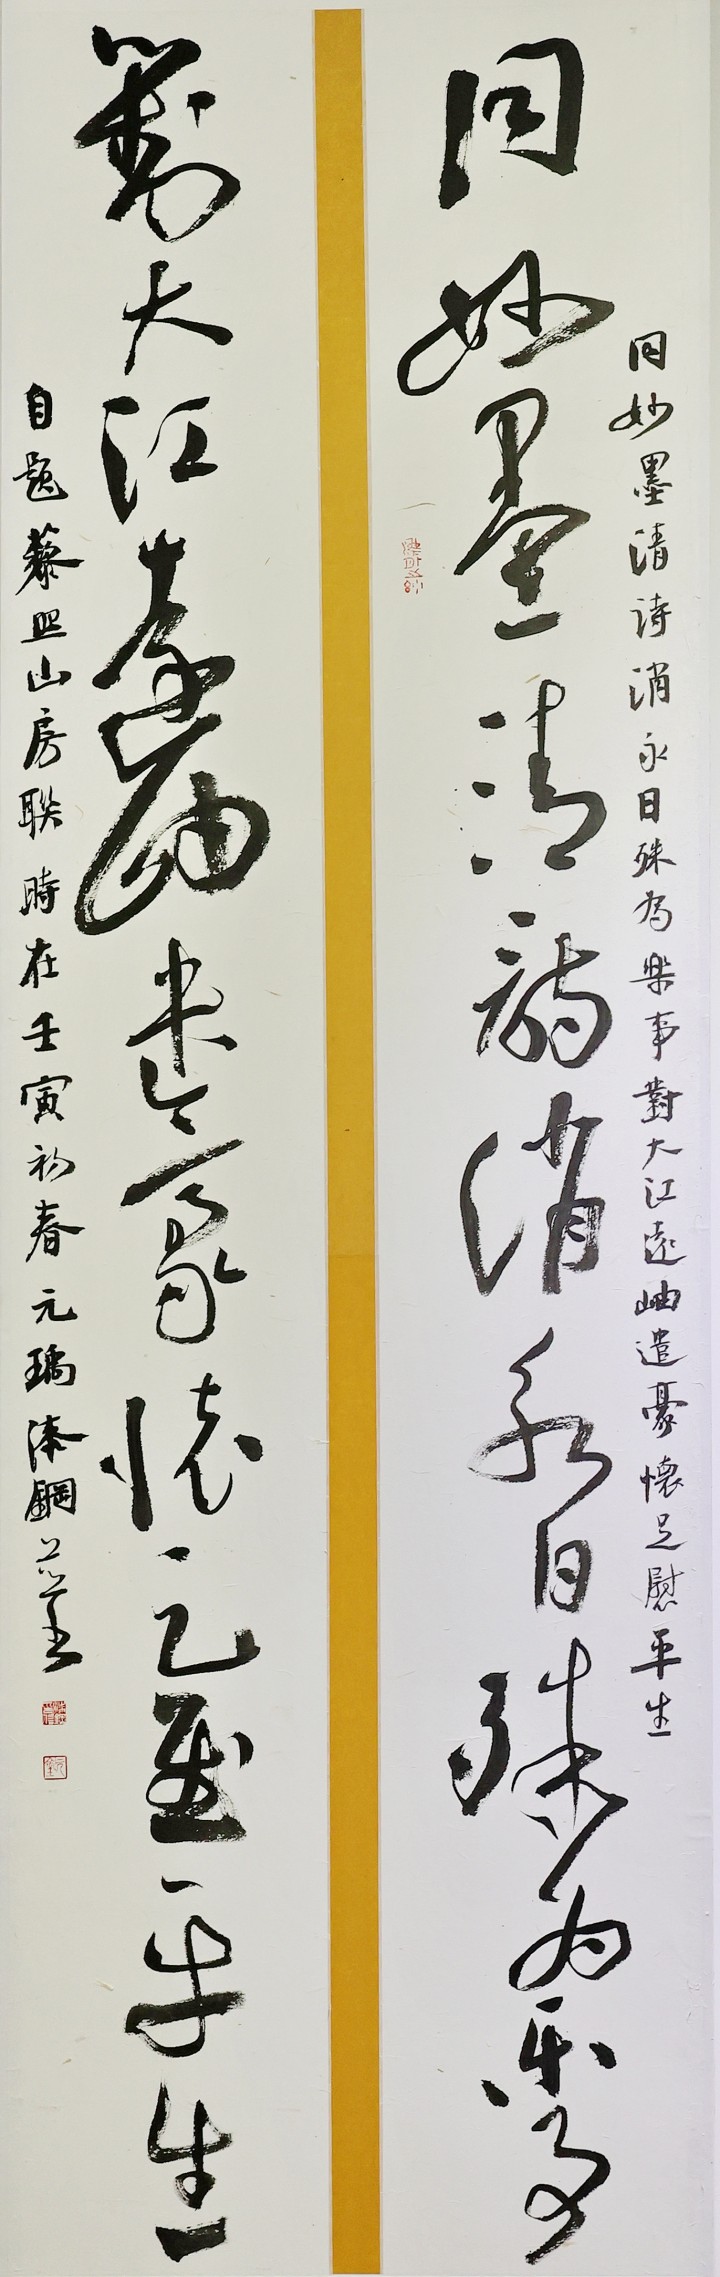 同妙墨清詩消永日殊為樂事對大江遠岫遣豪懷足慰平生
同妙墨清詩消永日殊為樂事
對大江遠岫遣豪懷足慰平生
自題藜照山房聯時在壬寅初春元瑀